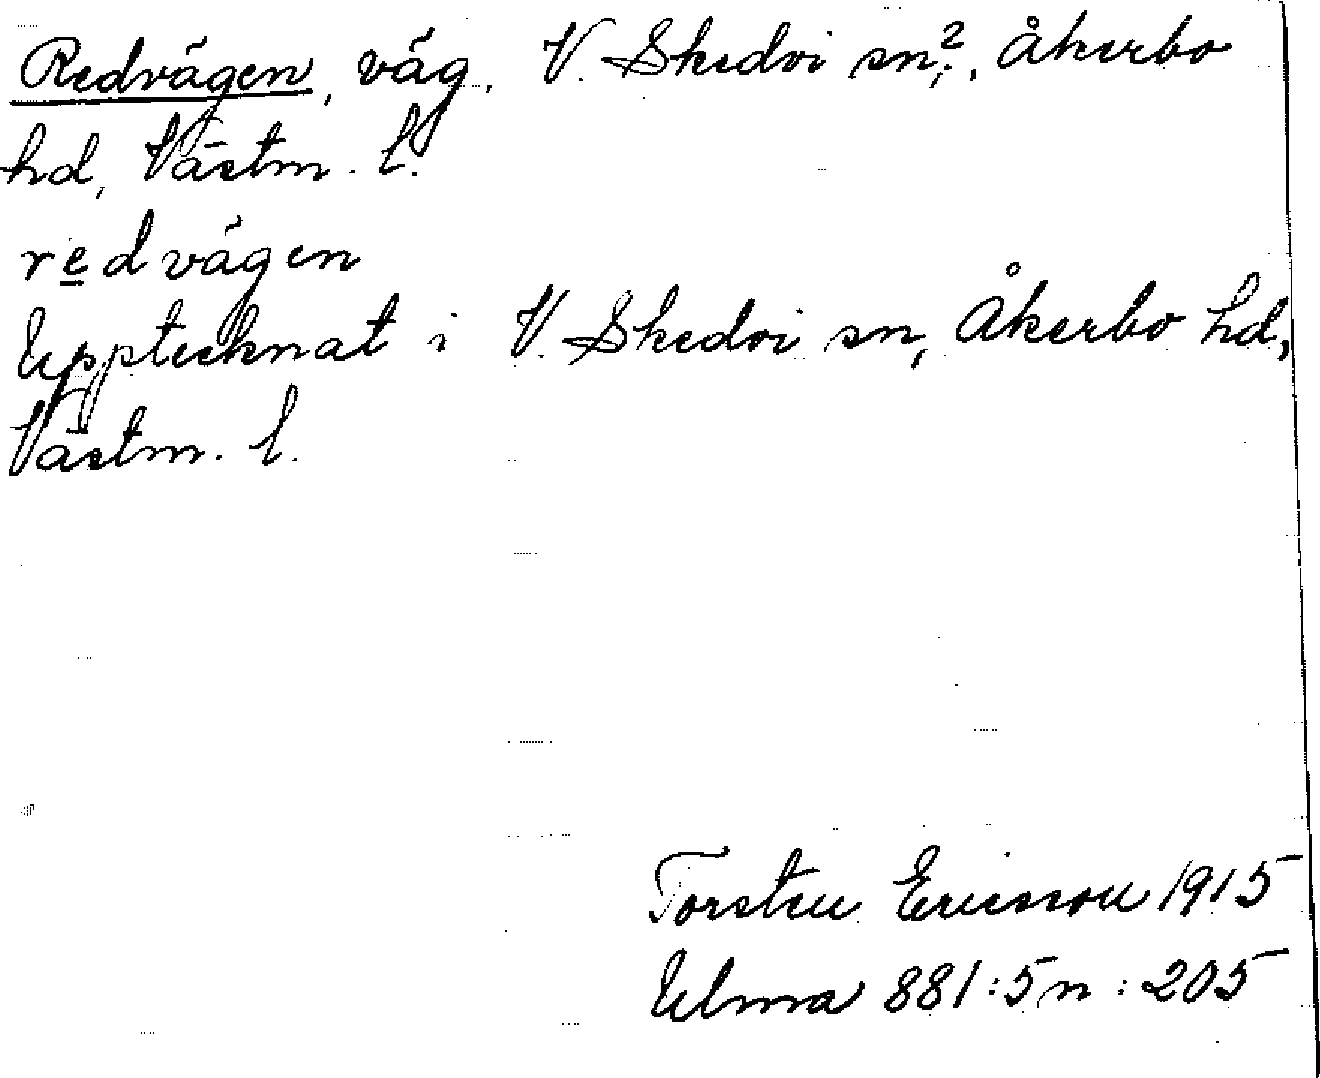 Redvägen, väg, V. Skedvi sn?, Åkerbo
hd, Västm. l.
redvägen
Upptecknat i V. Skedvi sn, Åkerbo hd,
Västm. l.
Torsten Ericsson 1915
Ulma 881:5 n:205